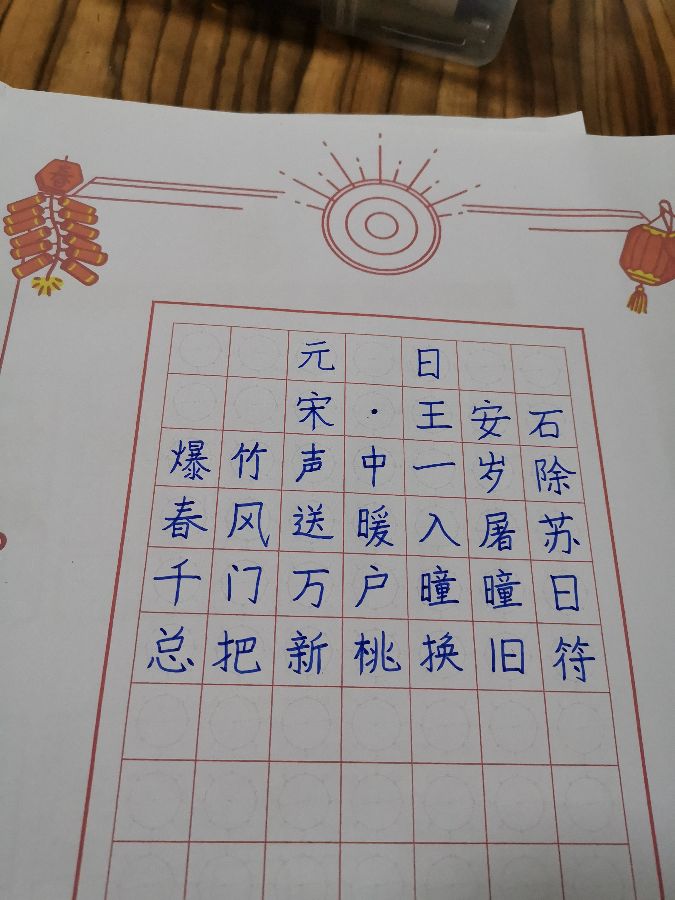 春
元日
宋·王安石
爆竹声中一岁除
春风送暖入屠苏
千门万户瞳瞳日
总把新桃换旧符